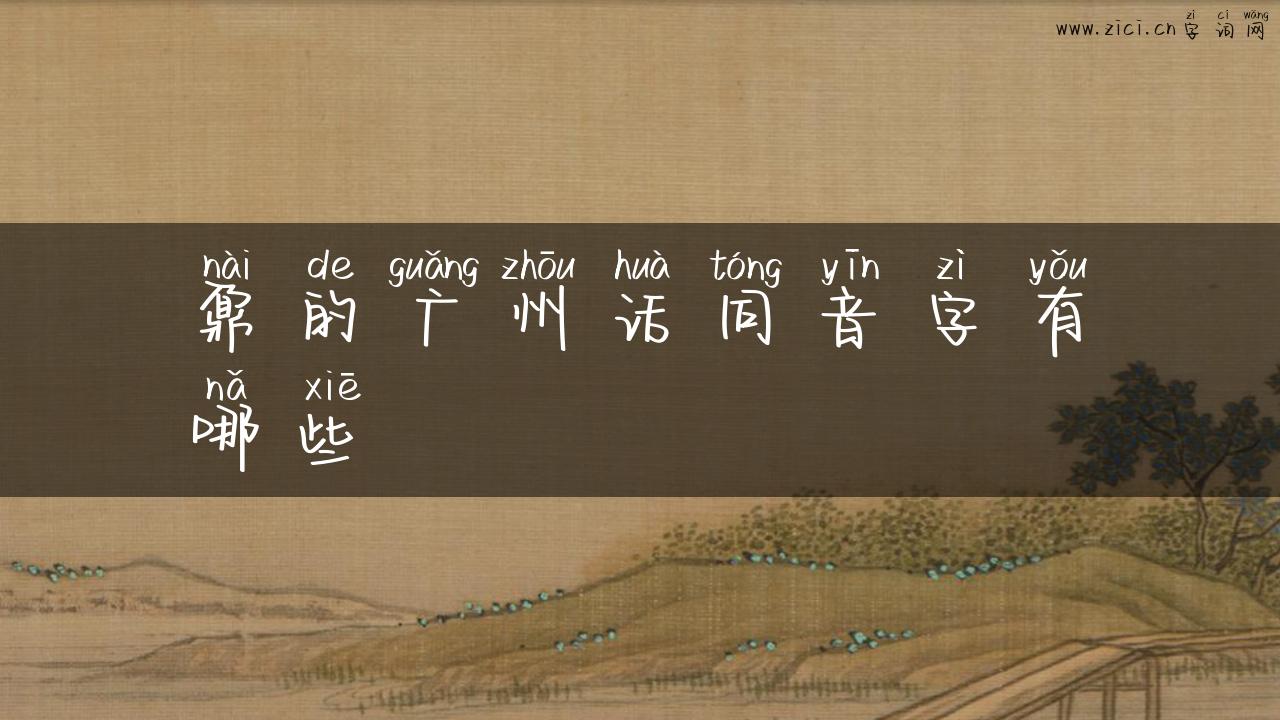 zì cí wǎng
www.zici.cn字词网
nài de guǎng zhōu huà tóng yīn zì yǒu
鼐的广州话同音字有
nǎ xiē
哪些